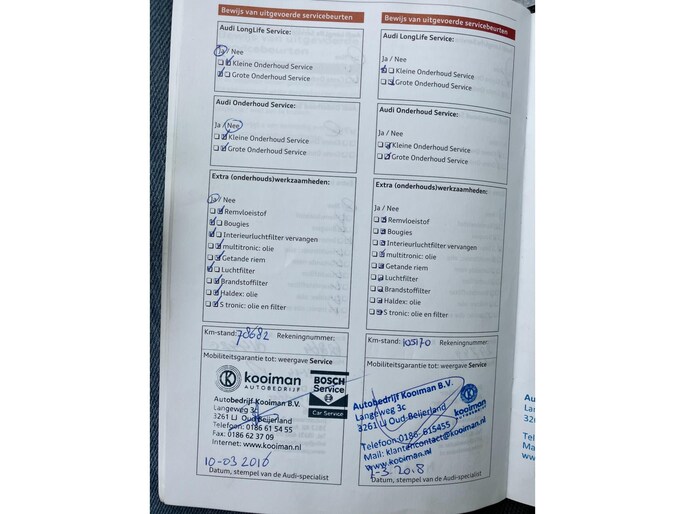 Bewijs van uitgevoerde servicebeurten
Audi LongLife Service:
Ja / Nee
Kleine Onderhoud Service
Grote Onderhoud Service
Audi Onderhoud Service:
Ja / Nee
Kleine Onderhoud Service
Grote Onderhoud Service
Extra (onderhouds)werkzaamheden:
Ja / Nee
Remvloeistof
Bougies
Interieurluchtfilter vervangen
multitronic: olie
Getande riem
Luchtfilter
Brandstoffilter
Haldex: olie
S tronic: olie en filter
Km-stand: 78682 Rekeningnummer:
Mobiliteitsgarantie tot: weergave Service
K kooiman
AUTOBEDRIJF
BOSCH
Service
Car Service
Autobedrijf Kooiman B.V.
Langeweg 3c
3261 LJ Oud-Beijerland
Telefoon: 0186 61 54 55
Fax: 0186 62 37 09
Internet: www.kooiman.nl
10-03 2016
Datum, stempel van de Audi-specialist
Bewijs van uitgevoerde servicebeurten
Audi LongLife Service:
Ja / Nee
Kleine Onderhoud Service
Grote Onderhoud Service
Audi Onderhoud Service:
Ja / Nee
Kleine Onderhoud Service
Grote Onderhoud Service
Extra (onderhouds)werkzaamheden:
Ja / Nee
Remvloeistof
Bougies
Interieurluchtfilter vervangen
multitronic: olie
Getande riem
Luchtfilter
Brandstoffilter
Haldex: olie
S tronic: olie en filter
Km-stand: 105170 Rekeningnummer:
Mobiliteitsgarantie tot: weergave Service
Autobedrijf Kooiman B.V.
Langeweg 3c
3261 LJ Oud-Beijerland
kooiman
Telefoon: 0186-615455
Mail: klantencontact@kooiman.nl
www.kooiman.nl
Datum, stempel van de Audi-specialist